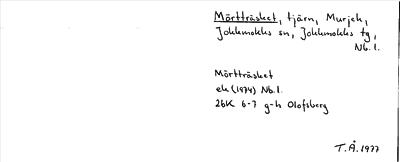 Mörtträsket, tjärn, Murjek,
Jokkmokks sn, Jokkmokks tg,
Nb. l.
Mörtträsket
ek (1974) Nb. l.
26K 6-7 g-h Olofsberg
T. Å. 1977